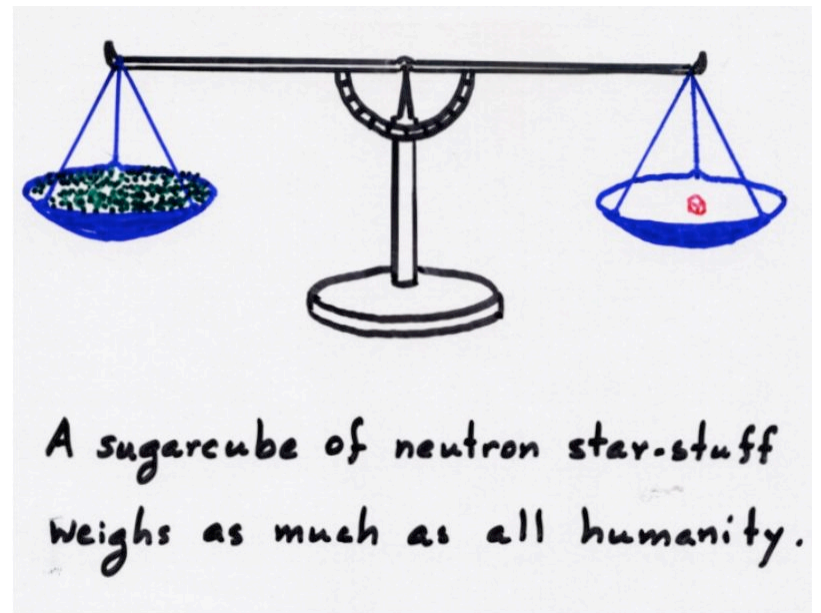 A sugarcube of neutron star-stuff
weighs as much as all humanity.